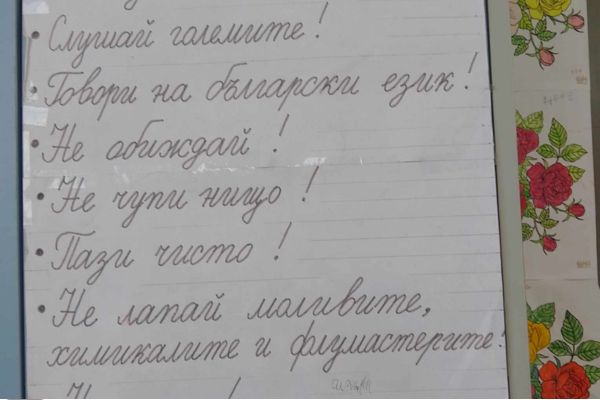 • Слушай големите!
• Говори на български език!
• Не обиждай!
• Не чупи нищо!
• Пази чисто!
• Не лапай моливите,
химикалите и флумастерите!